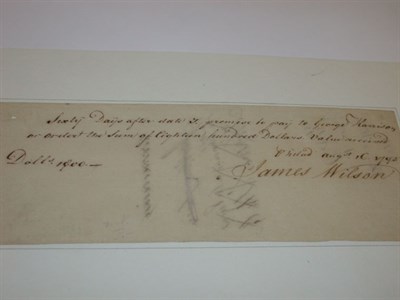 Sixty Days after date I promise to pay to George Harrison
or order the Sum of Eighteen hundred Dollars Value received
Philad Augt 16 1795
Dolls 1800 —
James Wilson